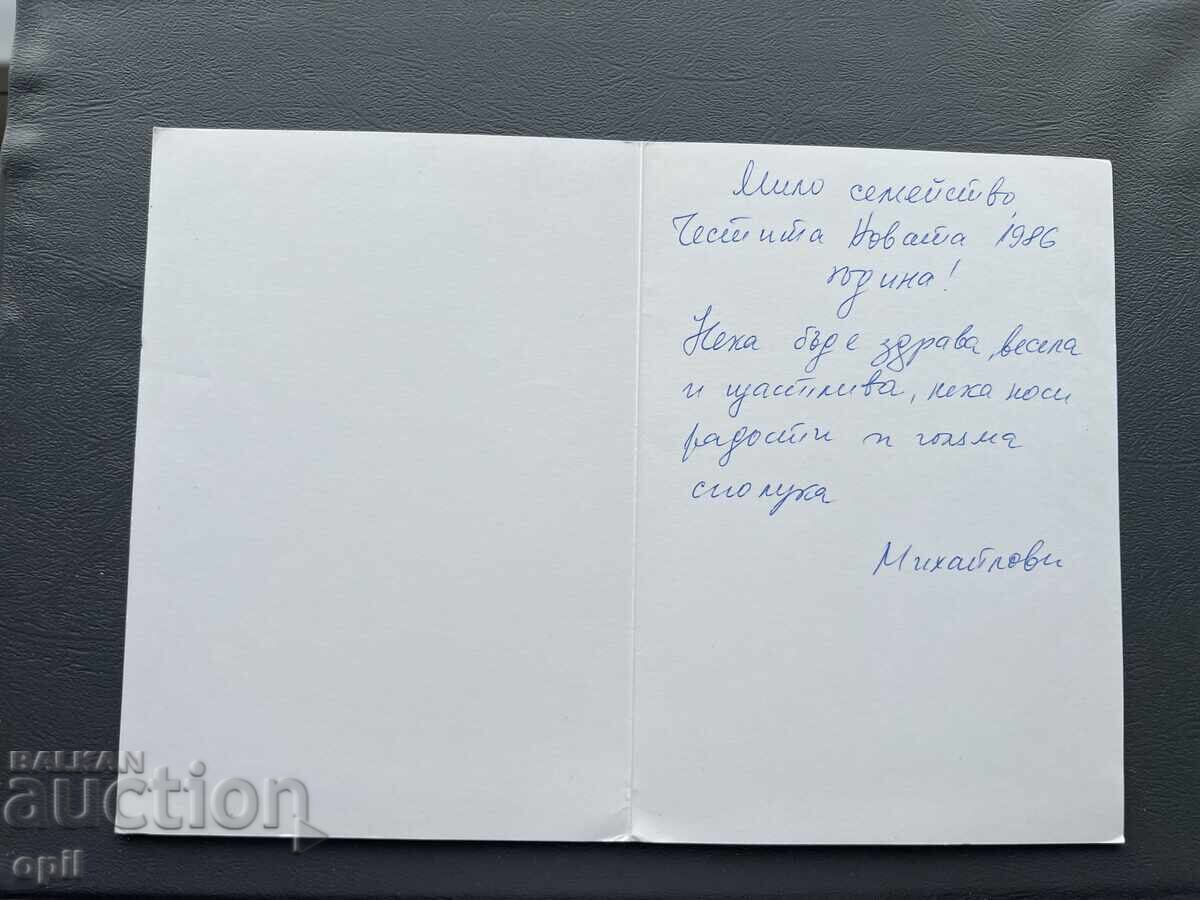 Мило семейство,
Честита Новата 1986
година!
Нека бъде здрава, весела
и щастлива, нека носи
радости и голяма
сполука
Михайлови
BALKAN
auction
opil